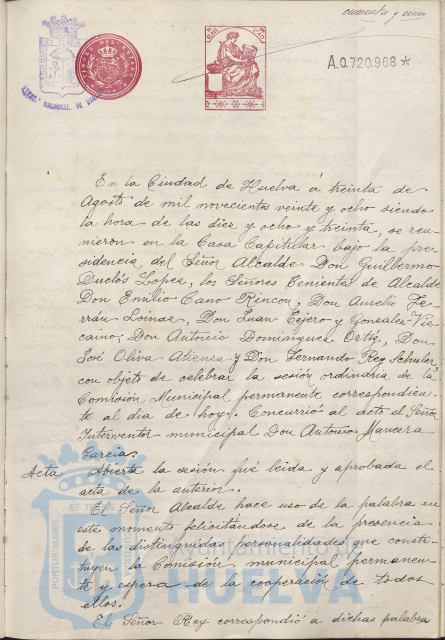 cuarenta y cinco
A.0.720.968 *
En la Ciudad de Huelva á treinta de
Agosto de mil novecientos veinte y ocho siendo
la hora de las diez y ocho y treinta, se reu-
nieron en la Casa Capitular bajo la pre-
sidencia del Señor Alcalde Don Guillermo
Duclós Lopez, los Señores Tenientes de Alcalde
Don Emilio Cano Rincon, Don Aurelio Fe-
rrán Loinaz, Don Juan Tejero y Gonzalez Viz-
caino, Don Antonio Dominguez Ortiz, Don
José Oliva Atienza y Don Fernando Rey Schuler,
con objeto de celebrar la sesión ordinaria de la
Comisión Municipal permanente correspondien-
te al dia de hoy. Concurrió al acto el Señor
Interventor municipal Don Antonio Mancera
Garcia.
Acta Abierta la sesión fué leida y aprobada el
acta de la anterior.
El Señor Alcalde hace uso de la palabra en
este momento felicitándose de la presencia
de las distinguidas personalidades que consti-
tuyen la Comisión municipal permanen-
te y espera de la cooperación de todos
ellos.
El Señor Rey correspondió a dichas palabras
PORTUS MARIS
Ayuntamiento de
HUELVA